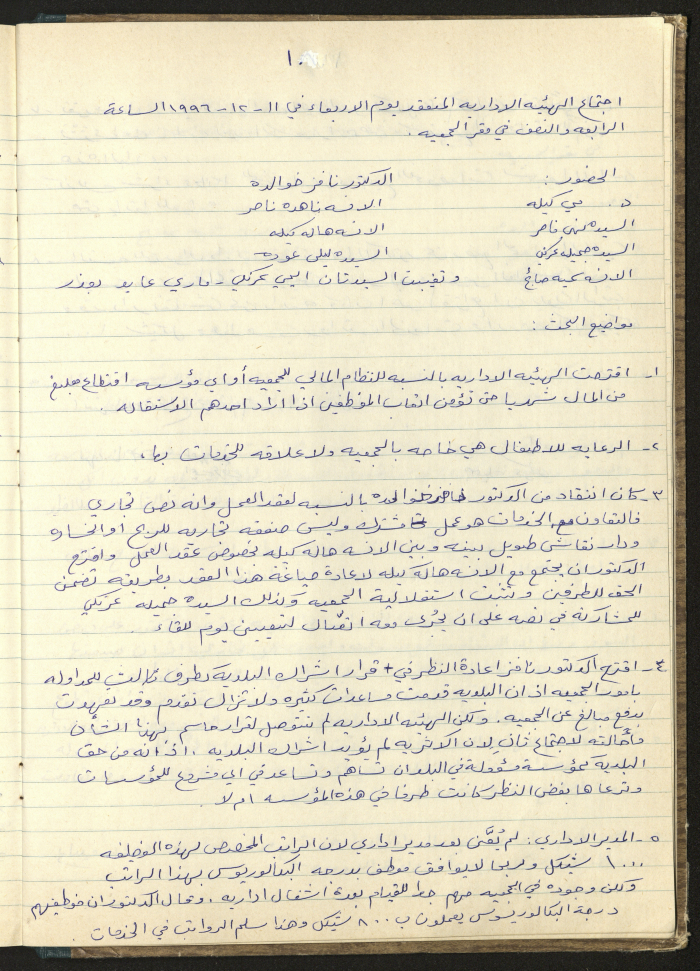 ١٠
اجتماع الهيئه الاداريه المنعقد يوم الاربعاء في ١١-١٢-١٩٩٦ الساعة
الرابعه والنصف في مقر الجمعيه .
الحضور : الدكتور نافز خوالده
د. مي كيله الانسه ناهده ناصر
السيده منى ناصر الانسه هاله كيله
السيده جميله عركي السيده ليلى عوده
الانسه نجيه صايغ وتغيبت السيدتان اليمي عركي - ماري عابد بوزر
مواضيع البحث :
١- اقترحت الهيئه الاداريه بالنسبه للنظام المالي للجمعيه أو اي مؤسسه اقتطاع مبلغ
من المال شهريا حتى تؤمن اتعاب الموظفين اذا اراد احدهم الاستقاله .
٢- الرعايه للاطفال هي خاصه بالجمعيه ولا علاقه للخدمات بها .
٣- كان انتقاد من الدكتور نافز خوالده بالنسبه لعقد العمل وانه نص تجاري
فالتعاون مع الخدمات هو عمل مشترك وليس صفقه تجاريه للربح أو الخساره
ودار نقاش طويل بينه وبين الانسه هاله كيله بخصوص عقد العمل واقترح
الدكتور ان يجتمع مع الانسه هاله كيله لاعادة صياغة هذا العقد بطريقه تضمن
الحق للطرفين وتثبت استقلالية الجمعيه وكذلك السيده جميله عركي
للمشاركة في نصه على ان يجرى معه اتصال لتعيين يوم للقاء .
٤- اقترح الدكتور نافز اعادة النظر في قرار اشراك البلديه كطرف ثالث للمداوله
بامور الجمعيه اذ ان البلديه قدمت مساعدات كثيره ولا تزال تقدم وقد تعهدت
بدفع مبالغ عن الجمعيه . ولكن الهيئه الاداريه لم تتوصل لقرار حاسم بهذا الشأن
وأحالته لاجتماع ثانٍ لان الاكثريه لم تؤيد اشراك البلديه . اذ أنه من حق
البلدية كمؤسسة مسؤولة في البلد ان تساهم وتساعد في اي مشروع للمؤسسات
وترعاها بغض النظر كانت طرفا في هذه المؤسسه ام لا .
٥- المدير الاداري : لم يُعَّين بعد مدير اداري لان الراتب المخصص لهذه الوظيفه
١٠٠٠ شيكل ولربما لا يوافق موظف بدرجه البكالوريوس بهذا الراتب
ولكن وجوده في الجمعيه مهم جدا للقيام بعدة اشغال اداريه . وقال الدكتور ان موظفيهم
درجة البكالوريوس يعملون ب ٨٠٠ شيكل وهذا سلم الرواتب في الخدمات .